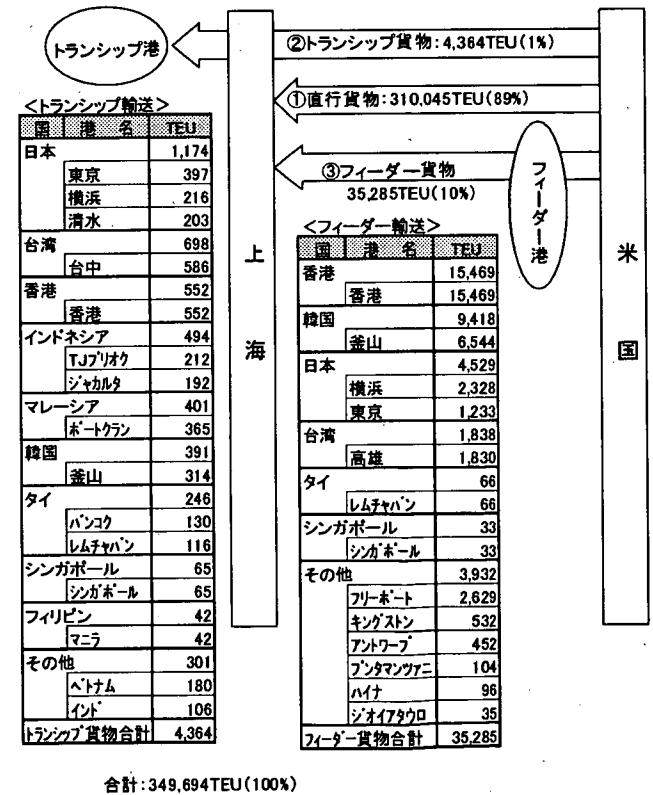 トランシップ港
②トランシップ貨物:4,364TEU(1%)
①直行貨物:310,045TEU(89%)
③フィーダー貨物
35,285TEU(10%)
フィーダー港
上海
米国
<トランシップ輸送>
国 港 名 TEU
日本 1,174
東京 397
横浜 216
清水 203
台湾 698
台中 586
香港 552
香港 552
インドネシア 494
TJプリオク 212
ジャカルタ 192
マレーシア 401
ポートクラン 365
韓国 391
釜山 314
タイ 246
バンコク 130
レムチャバン 116
シンガポール 65
シンガポール 65
フィリピン 42
マニラ 42
その他 301
ベトナム 180
インド 106
トランシップ貨物合計 4,364
<フィーダー輸送>
国 港 名 TEU
香港 15,469
香港 15,469
韓国 9,418
釜山 6,544
日本 4,529
横浜 2,328
東京 1,233
台湾 1,838
高雄 1,830
タイ 66
レムチャバン 66
シンガポール 33
シンガポール 33
その他 3,932
フリーポート 2,629
キングストン 532
アントワープ 452
プンタマンツァニ 104
ハイナ 96
ジオイアタウロ 35
フィーダー貨物合計 35,285
合計:349,694TEU(100%)